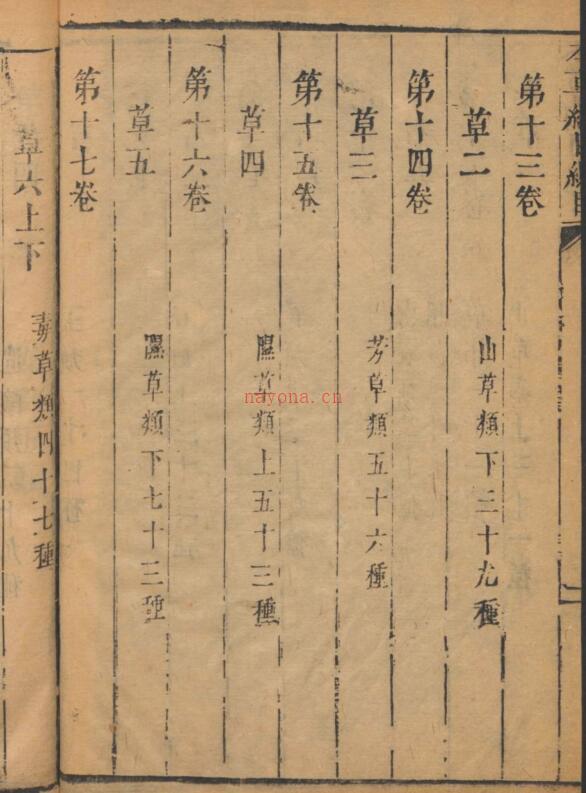 第十三卷
草二
山草類下三十九種
第十四卷
草三
芳草類五十六種
第十五卷
草四
隰草類上五十三種
第十六卷
草五
隰草類下七十三種
第十七卷
草六上下
毒草類四十七種
nayona.cn